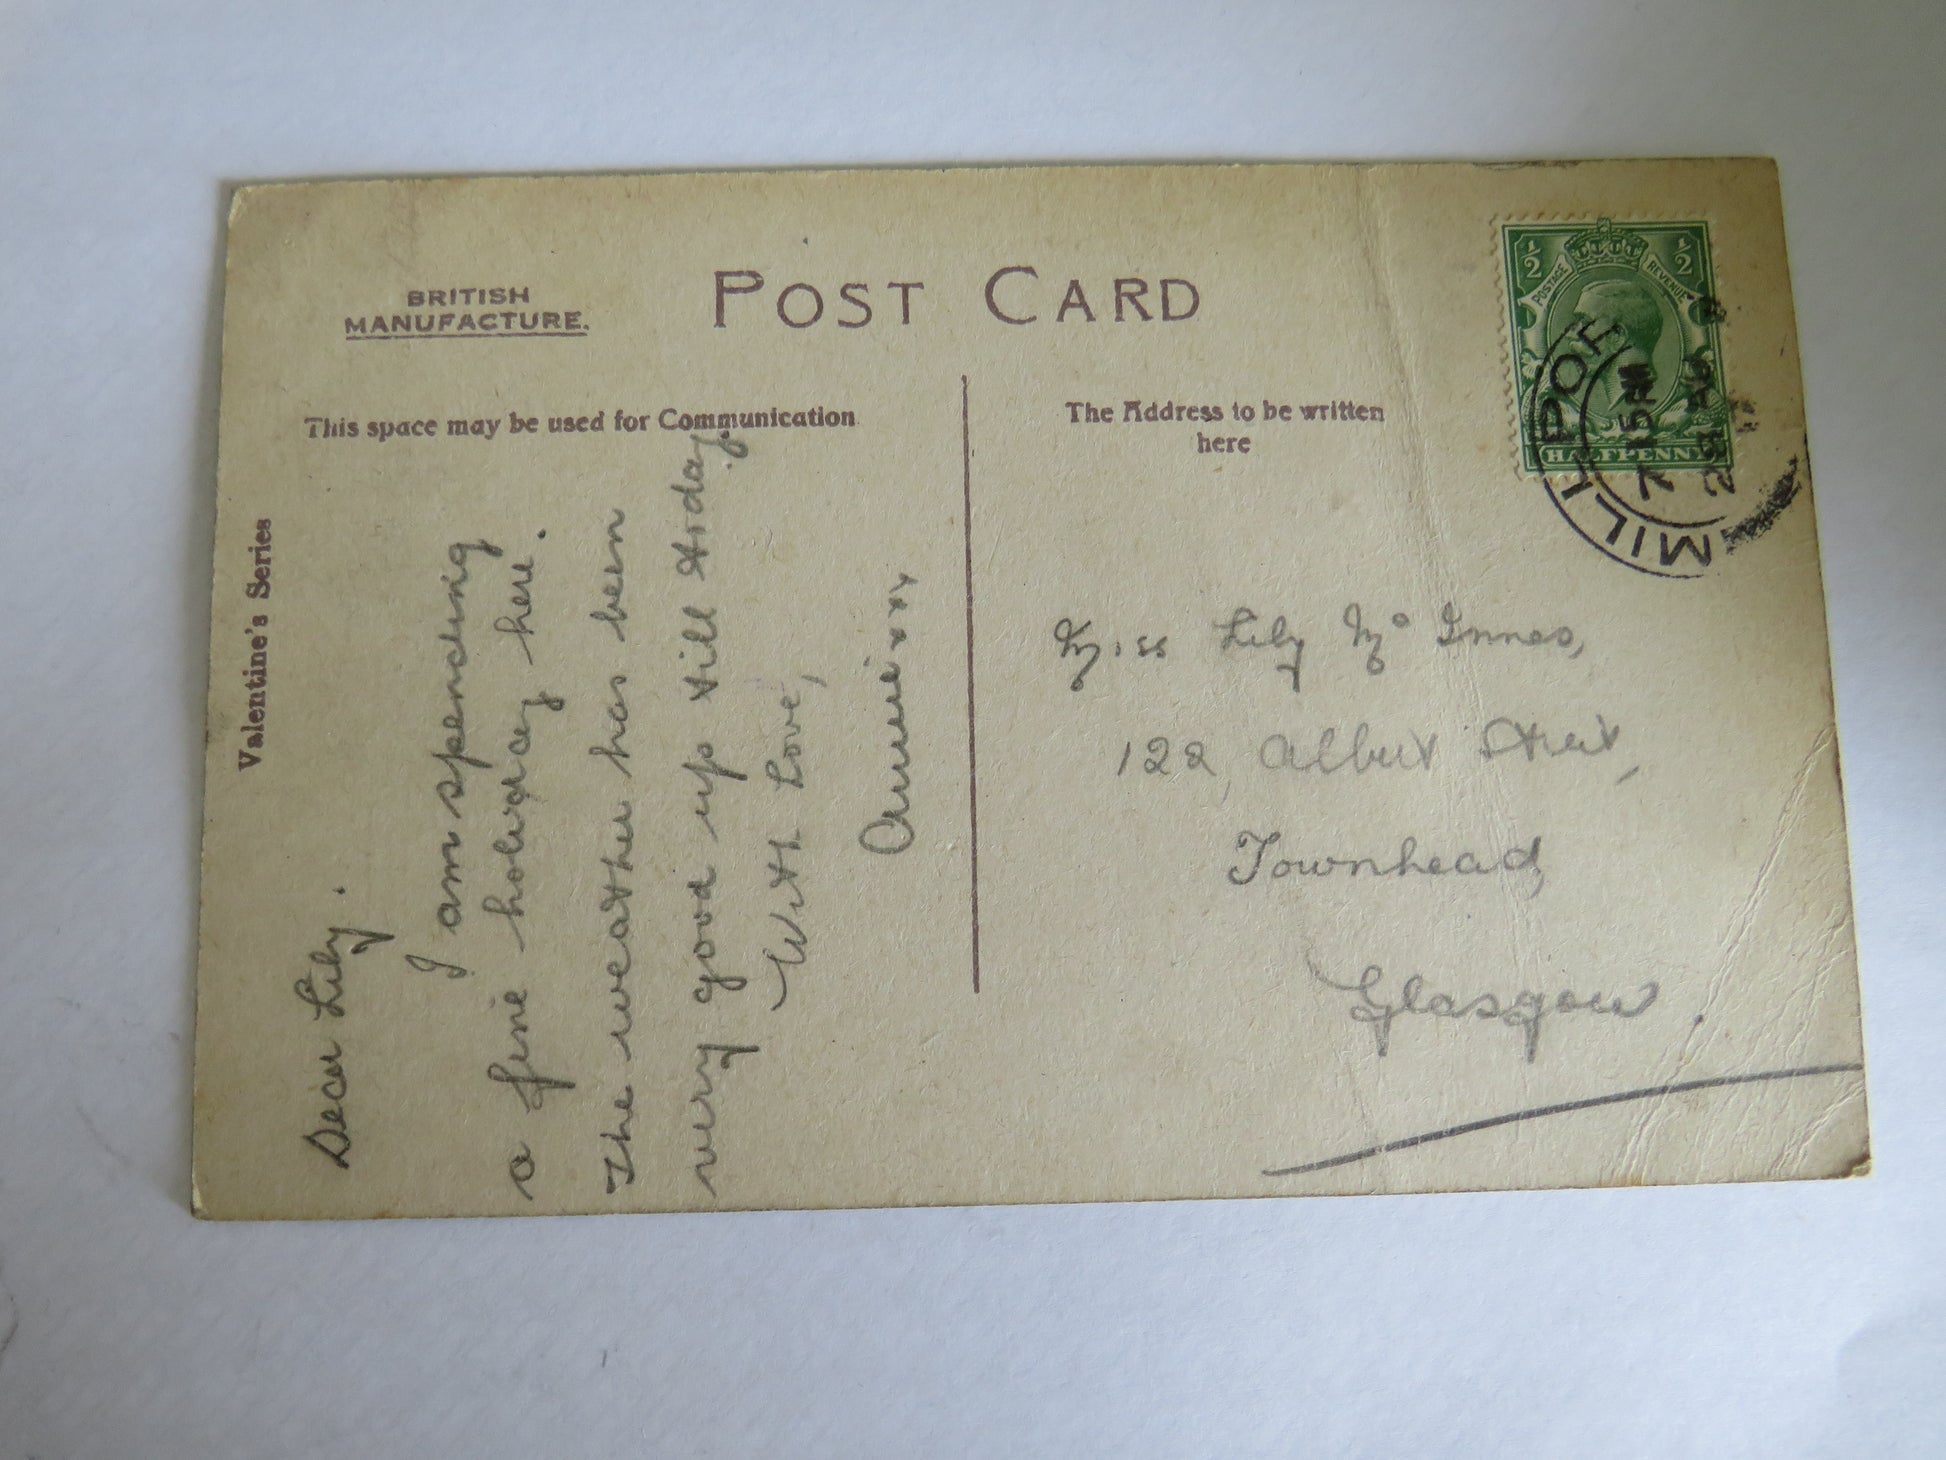 BRITISH
MANUFACTURE.
POST CARD
Valentine's Series
This space may be used for Communication
The Address to be written
here
½ ½
POSTAGE REVENUE
HALFPENNY
MILLPO
7 15 AM
Dear Lily.
I am spending
a fine holiday here.
The weather has been
very good up till to-day
With Love,
Annie xxx
Miss Lily Mc Innes,
122 Albert Street,
Townhead,
Glasgow.